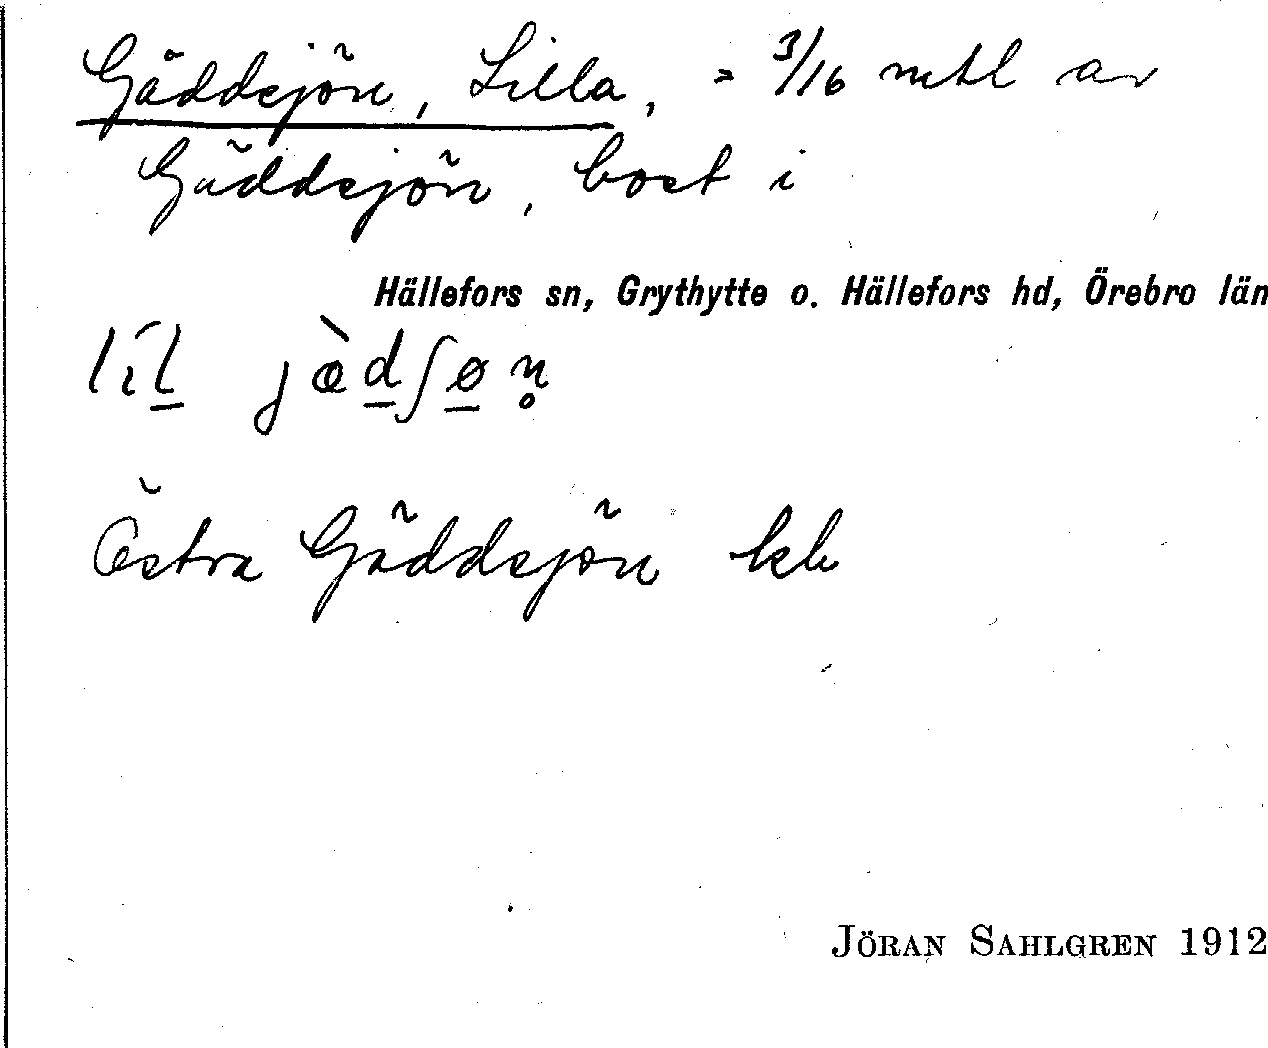 Gäddsjön, Lilla, = 3/16 mtl av
Gäddsjön, bost i
Hällefors sn, Grythytte o. Hällefors hd, Örebro län
líl̲ jæ̀d̲ʃø̲n̥
Östra Gäddsjön kb
JÖRAN SAHLGREN 1912